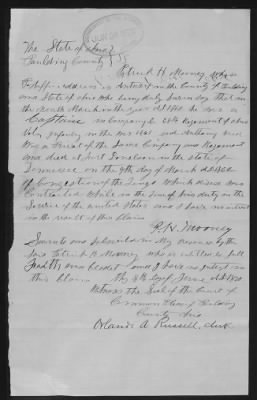 The State of Ohio
Paulding County } SS
Patrick H Mooney whose
Postoffice address is Antwerp in the County of Paulding
and State of Ohio who being duly sworn say that in
the month March in the year of 1862 he was a
Captain in Company 68th Regiment of Ohio
Vols Infantry in the War 1861 and Anthony
was a Private of the same Company and Regiment
and died at Fort Donelson in the State of
Tennessee on the 9th day of March 1862
of Congestion of the Lungs Which disease was
Contracted While in the line of his duty in the
Service of the united States and I have no interest
in the result of this Claim
P. H. Mooney
Sworn to and subscribed in My presence by the
said Patrick H Mooney who is entitled to full
Faith and Credit and I have no interest in
this claim this 8th day of June 1880
Witness the Seal of the Court of
Common Pleas of Paulding
County Ohio
Orlando A Russell, Clerk